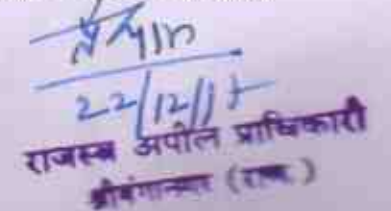 22/12/17
राजस्व अपील प्राधिकारी
श्रीगंगानगर (राज.)